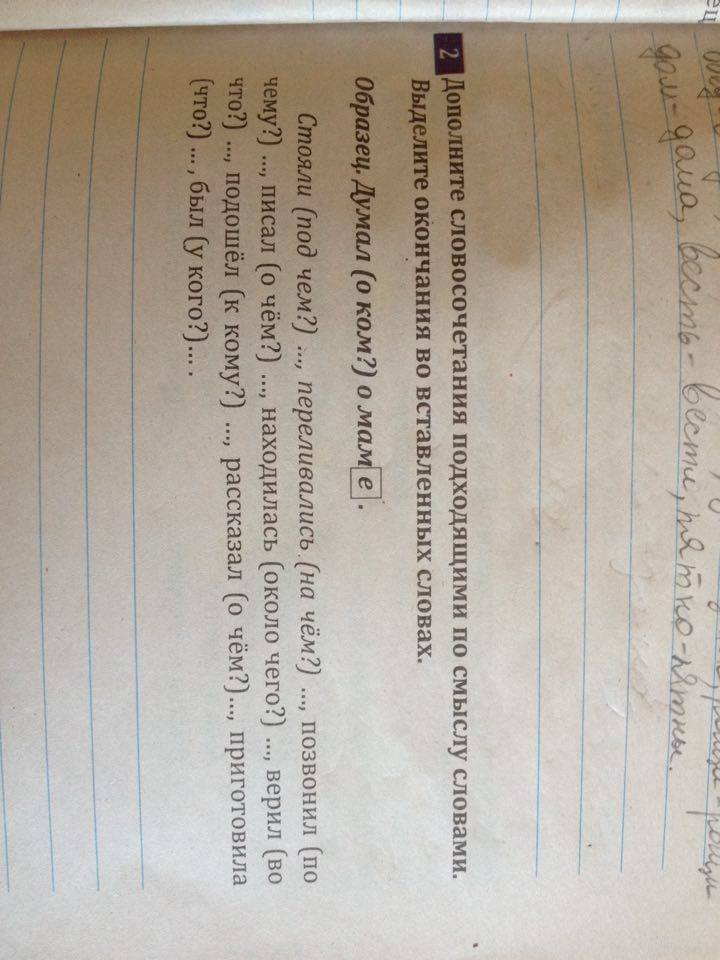 дом - дома, весть - вести, пятно - пятны.
2 Дополните словосочетания подходящими по смыслу словами.
Выделите окончания во вставленных словах.
Образец. Думал (о ком?) о маме.
Стояли (под чем?) ..., переливались (на чём?) ..., позвонил (по
чему?) ..., писал (о чём?) ..., находилась (около чего?) ..., верил (во
что?) ..., подошёл (к кому?) ..., рассказал (о чём?)..., приготовила
(что?) ... , был (у кого?)... .